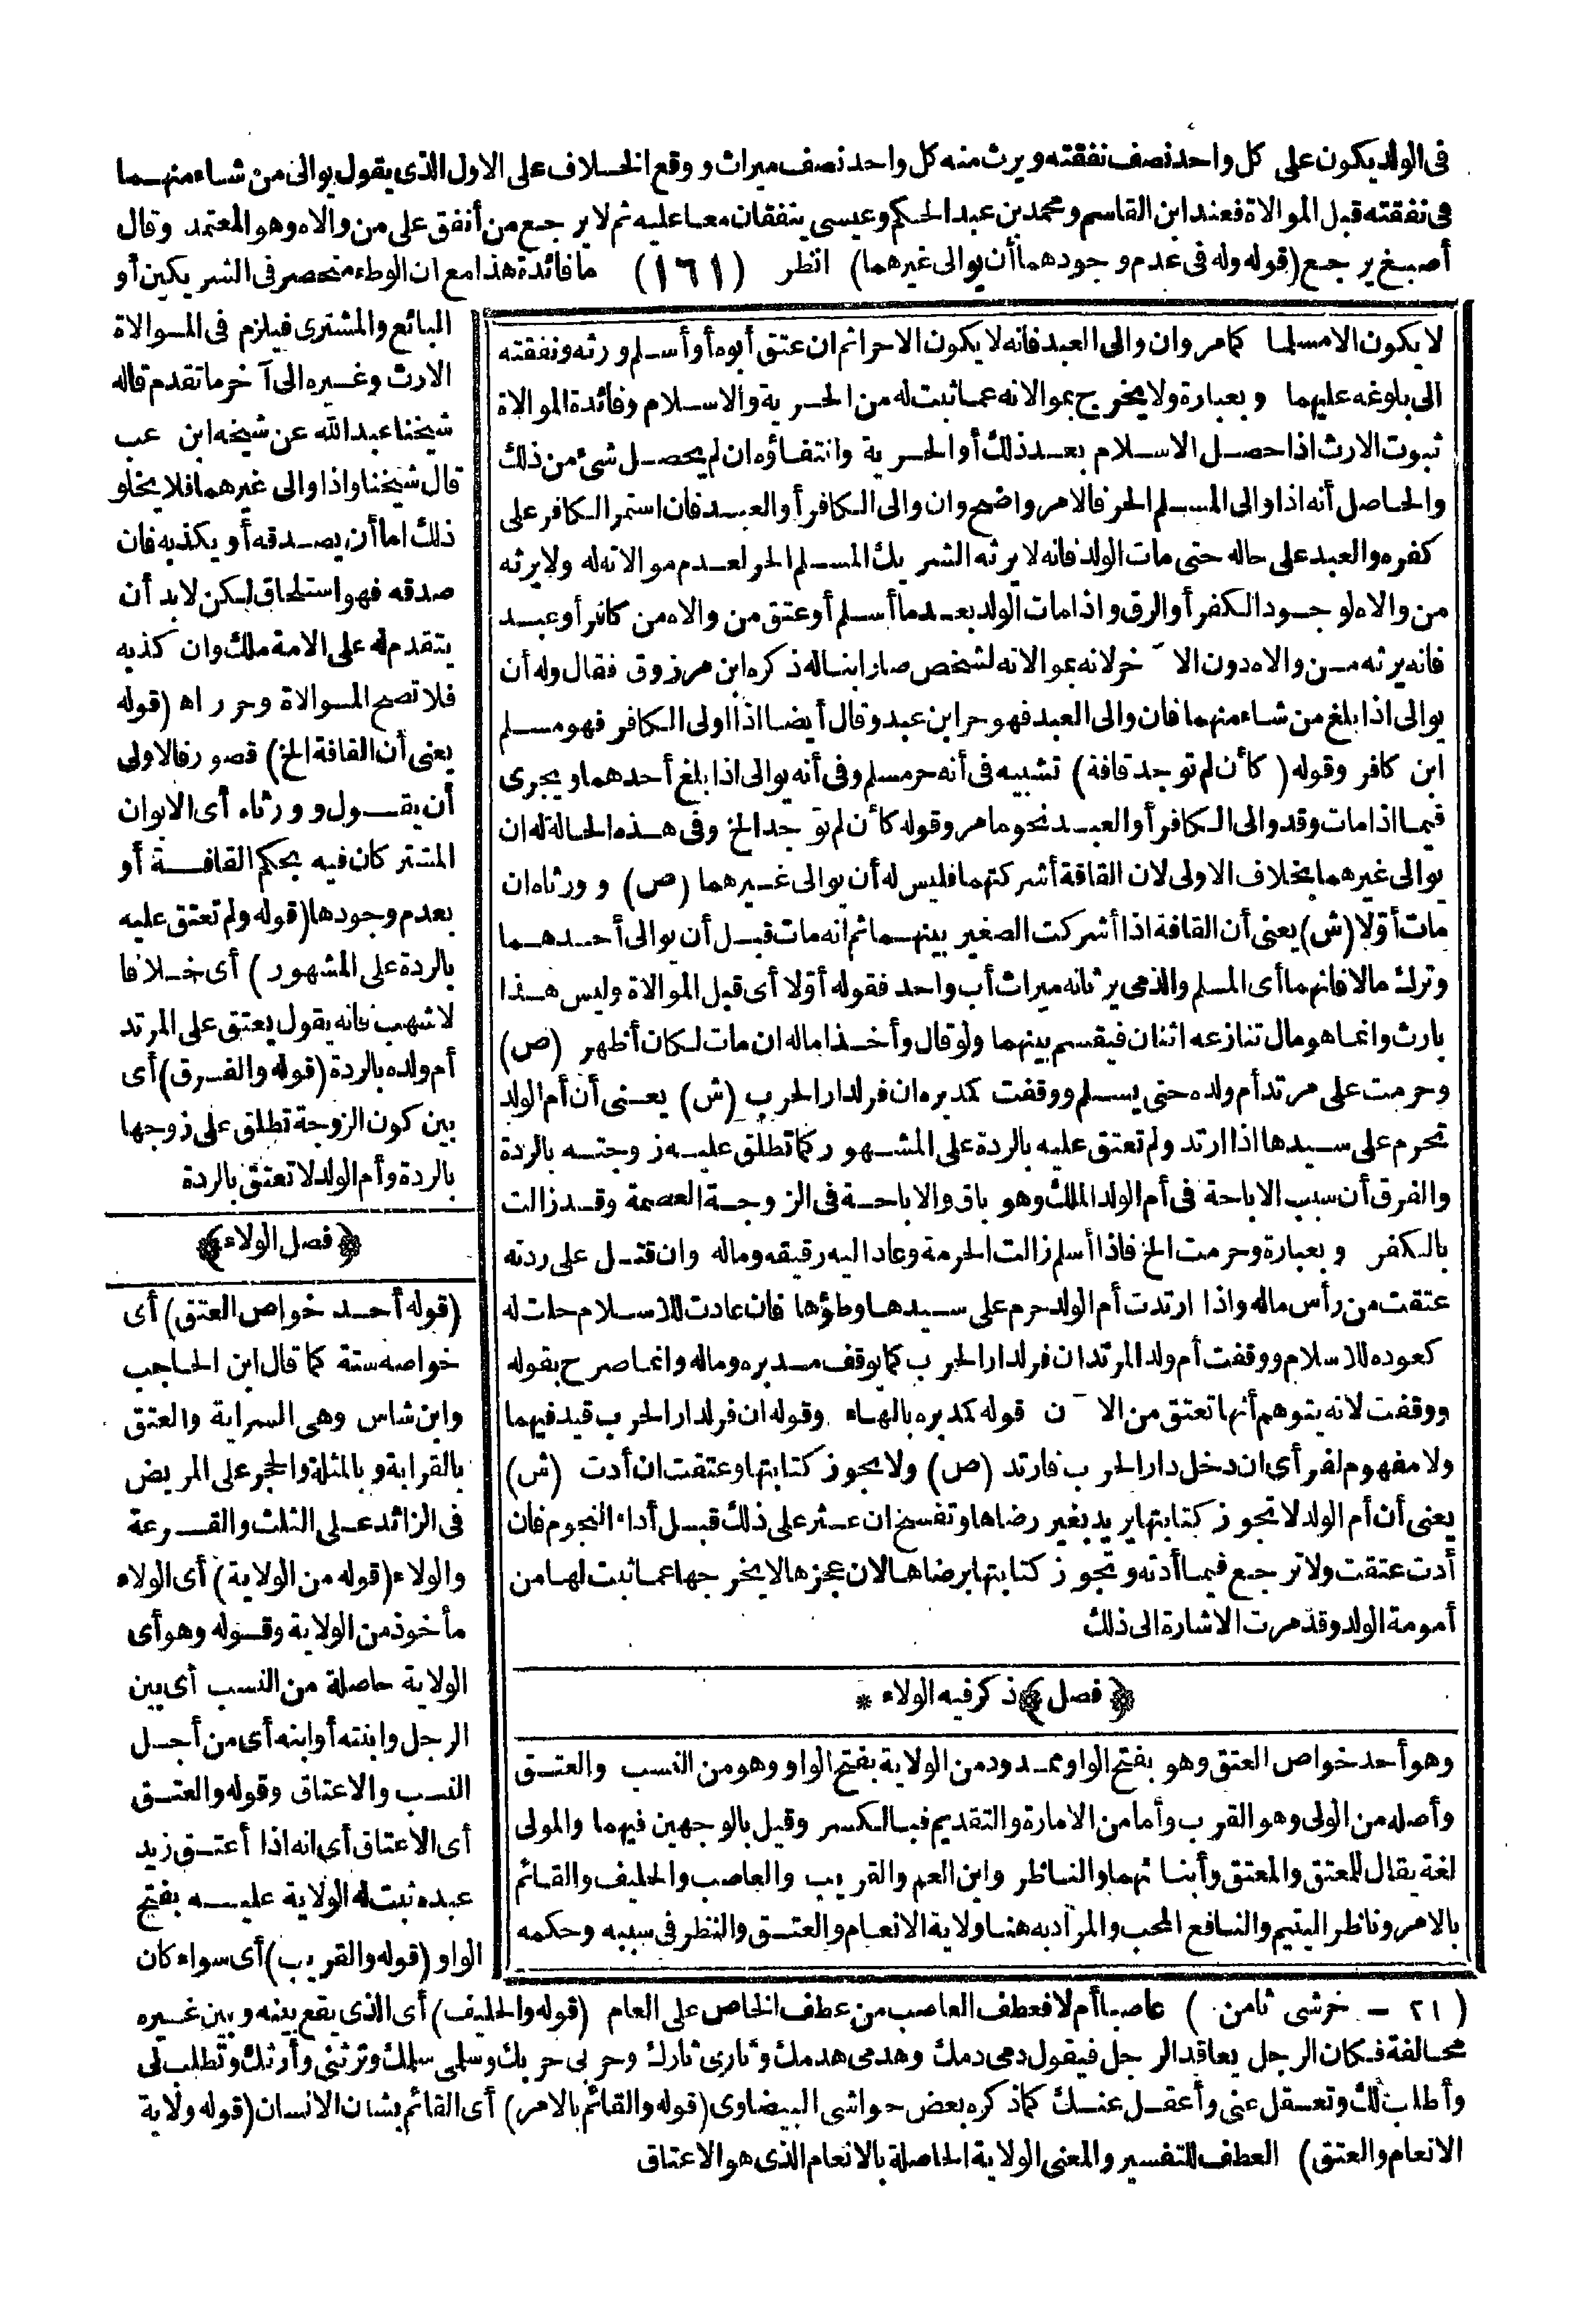 فى الولد يكون على كل واحد نصف نفقته ويرث منه كل واحد نصف ميراث ووقع الخلاف على الاول الذى يقول يوالى من شاء منهما
فى نفقته قبل الموالاة فعند ابن القاسم ومحمد بن عبد الحكم وعيسى ينفقان معا عليه ثم لا يرجع من أنفق على من والاه وهو المعتمد وقال
أصبغ يرجع (قوله وله فى عدم وجودهما أن يوالى غيرهما) انظر (١٦١) ما فائدة هذا مع ان الوطء منحصر فى الشريكين أو
البائع والمشترى فيلزم فى الموالاة
الارث وغيره الى آخر ما تقدم قاله
شيخنا عبد الله عن شيخه ابن عب
قال شيخنا واذا والى غيرهما فلا يخلو
ذلك اما أن يصدقه أو يكذبه فان
صدقه فهو استلحاق لكن لابد أن
يتقدم له على الامة ملك وان كذبه
فلا تصح الموالاة وحرر اه (قوله
يعنى أن القافة الخ) قصور فالاولى
أن يقول وورثاه أى الابوان
المشتركان فيه بحكم القافة أو
بعدم وجودها (قوله ولم تعتق عليه
بالردة على المشهور) أى خلافا
لاشهب فانه يقول يعتق على المرتد
أم ولده بالردة (قوله والفرق) أى
بين كون الزوجة تطلق على زوجها
بالردة وأم الولد لا تعتق بالردة
﴿فصل الولاء﴾
(قوله أحد خواص العتق) أى
خواصه ستة كما قال ابن الحاجب
وابن شاس وهى السراية والعتق
بالقرابة وبالمثلة والحجر على المريض
فى الزائد على الثلث والقرعة
والولاء (قوله من الولاية) أى الولاء
مأخوذ من الولاية وقوله وهو أى
الولاية حاصلة من النسب أى بين
الرجل وابنته أو ابنه أى من أجل
النسب والاعتاق وقوله والعتق
أى الاعتاق أى انه اذا أعتق زيد
عبده ثبت له الولاية عليه بفتح
الواو (قوله والقريب) أى سواء كان
لا يكون الا مسلما كما مر وان والى العبد فانه لا يكون الا حرا ثم ان عتق أبوه أو أسلم ورثه ونفقته
الى بلوغه عليهما وبعبارة ولا يخرج بموالاته عما ثبت له من الحرية والاسلام وفائدة الموالاة
ثبوت الارث اذا حصل الاسلام بعد ذلك أو الحرية وانتفاؤه ان لم يحصل شئ من ذلك
والحاصل أنه اذا والى المسلم الحر فالامر واضح وان والى الكافر أو العبد فان استمر الكافر على
كفره والعبد على حاله حتى مات الولد فانه لا يرثه الشريك المسلم الحر لعدم موالاته له ولا يرثه
من والاه لوجود الكفر أو الرق واذا مات الولد بعد ما أسلم أو عتق من والاه من كافر أو عبد
فانه يرثه من والاه دون الآخر لانه بموالاته لشخص صار ابنا له ذكره ابن مرزوق فقال وله أن
يوالى اذا بلغ من شاء منهما فان والى العبد فهو حر ابن عبد وقال أيضا اذا والى الكافر فهو مسلم
ابن كافر وقوله (كأن لم توجد قافة) تشبيه فى أنه حر مسلم وفى أنه يوالى اذا بلغ أحدهما ويجرى
فيما اذا مات وقد والى الكافر أو العبد نحو ما مر وقوله كأن لم توجد الخ وفى هذه الحالة له ان
يوالى غيرهما بخلاف الاولى لان القافة أشركتهما فليس له أن يوالى غيرهما (ص) وورثاه ان
مات أولا (ش) يعنى أن القافة اذا أشركت الصغير بينهما ثم انه مات قبل أن يوالى أحدهما
وترك مالا فانهما أى المسلم والذمى يرثانه ميراث أب واحد فقوله أولا أى قبل الموالاة وليس هذا
بارث وانما هو مال تنازعه اثنان فيقسم بينهما ولو قال وأخذا ماله ان مات لكان أظهر (ص)
وحرمت على مرتد أم ولده حتى يسلم ووقفت كمدبره ان فر لدار الحرب (ش) يعنى أن أم الولد
تحرم على سيدها اذا ارتد ولم تعتق عليه بالردة على المشهور كما تطلق عليه زوجته بالردة
والفرق أن سبب الاباحة فى أم الولد الملك وهو باق والاباحة فى الزوجة العصمة وقد زالت
بالكفر وبعبارة وحرمت الخ فاذا أسلم زالت الحرمة وعاد اليه رقيقه وماله وان قتل على ردته
عتقت من رأس ماله واذا ارتدت أم الولد حرم على سيدها وطؤها فان عادت للاسلام حلت له
كعوده للاسلام ووقفت أم ولد المرتد ان فر لدار الحرب كما يوقف مدبره وماله وانما صرح بقوله
ووقفت لانه يتوهم أنها تعتق من الآن قوله كمدبره بالهاء وقوله ان فر لدار الحرب قيد فيهما
ولا مفهوم لفر أى ان دخل دار الحرب فارتد (ص) ولا يجوز كتابتها وعتقت ان أدت (ش)
يعنى أن أم الولد لا تجوز كتابتها يريد بغير رضاها وتفسخ ان عثر على ذلك قبل أداء النجوم فان
أدت عتقت ولا ترجع فيما أدته وتجوز كتابتها برضاها لان عجزها لا يخرجها عما ثبت لها من
أمومة الولد وقد مرت الاشارة الى ذلك
﴿فصل﴾ ذكر فيه الولاء *
وهو أحد خواص العتق وهو بفتح الواو ممدود من الولاية بفتح الواو وهو من النسب والعتق
وأصله من الولى وهو القرب وأما من الامارة والتقديم فبالكسر وقيل بالوجهين فيهما والمولى
لغة يقال للمعتق والمعتق وأبنائهما والناظر وابن العم والقريب والعاصب والحليف والقائم
بالامر وناظر اليتيم والنافع المحب والمراد به هنا ولاية الانعام والعتق والنظر فى سببه وحكمه
(٢١ - خرشى ثامن) عاصبا أم لا فعطف العاصب من عطف الخاص على العام (قوله والحليف) أى الذى يقع بينه وبين غيره
محالفة فكان الرجل يعاقد الرجل فيقول دمى دمك وهدمى هدمك وثارى ثارك وحربى حربك وسلمى سلمك وترثنى وأرثك وتطلب لى
وأطلب لك وتعقل عنى وأعقل عنك كما ذكره بعض حواشى البيضاوى (قوله والقائم بالامر) أى القائم بشان الانسان (قوله ولاية
الانعام والعتق) العطف للتفسير والمعنى الولاية الحاصلة بالانعام الذى هو الاعتاق